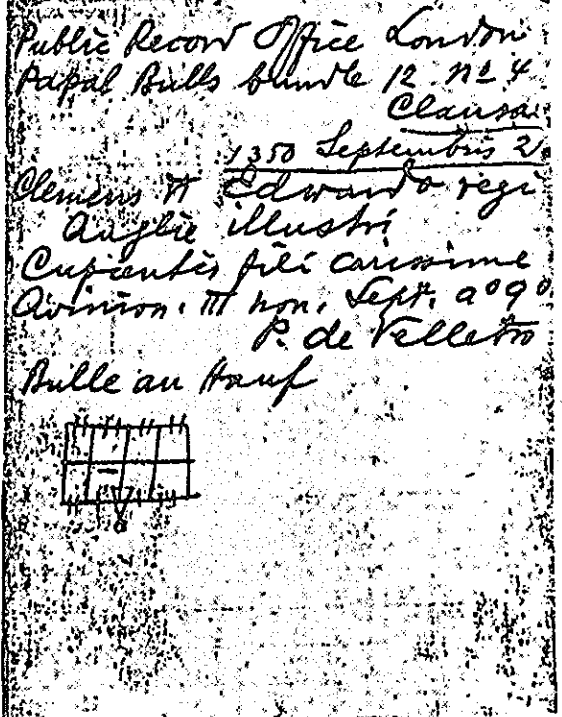 Public Record Office London
Papal Bulls bundle 12 nº 4
Clausa
1350 Septembris 2
Clemens VI Edwardo regi
Anglie illustri
Cupientes fili carissime
Avinion. IIII non. Sept. aº 9º
P. de Velletro
Bulle an Hanf